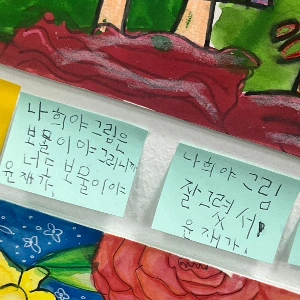 나희야 그림은
보물이야 그러니까
너도 보물이야
윤재가
나희야 그림
잘 그렸서!
윤재가!